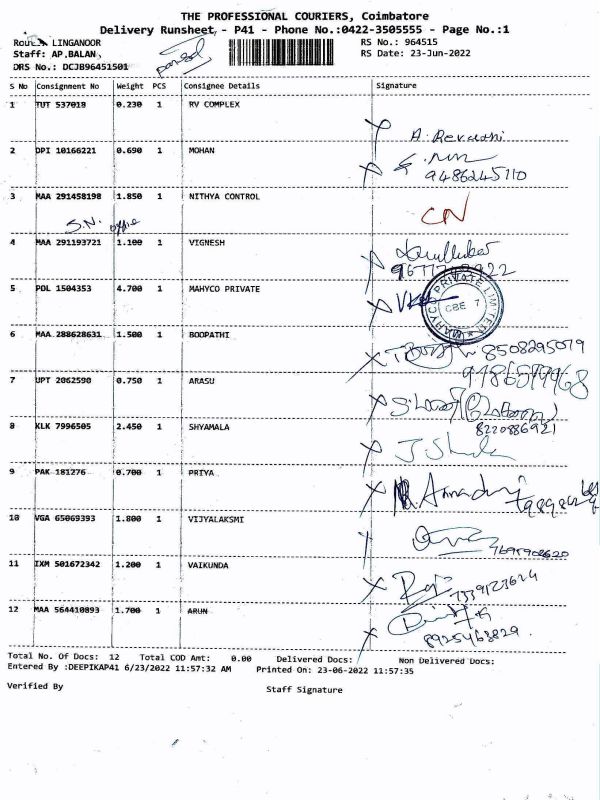 THE PROFESSIONAL COURIERS, Coimbatore
Delivery Runsheet, - P41 - Phone No.:0422-3505555 - Page No.:1
Route: LINGANOOR RS No.: 964515
Staff: AP.BALAN RS Date: 23-Jun-2022
DRS No.: DCJB96451501
S No Consignment No Weight PCS Consignee Details Signature
1 TUT 537018 0.230 1 RV COMPLEX
A. Revathi
2 DPI 10166221 0.690 1 MOHAN
9486245110
3 MAA 291458198 1.850 1 NITHYA CONTROL
CN
S.N. office
4 MAA 291193721 1.100 1 VIGNESH
5 POL 1504353 4.700 1 MAHYCO PRIVATE
MAHYCO PRIVATE LIMITED
CBE 7
6 MAA 288628631 1.500 1 BOOPATHI
8508295079
7 UPT 2062590 0.750 1 ARASU
8220886921
8 KLK 7996505 2.450 1 SHYAMALA
9 PAK 181276 0.700 1 PRIYA
10 VGA 65069393 1.800 1 VIJYALAKSMI
11 IXM 501672342 1.200 1 VAIKUNDA
7339123624
12 MAA 564410893 1.700 1 ARUN
8925463829
Total No. Of Docs: 12 Total COD Amt: 0.00 Delivered Docs: Non Delivered Docs:
Entered By :DEEPIKAP41 6/23/2022 11:57:32 AM Printed On: 23-06-2022 11:57:35
Verified By Staff Signature